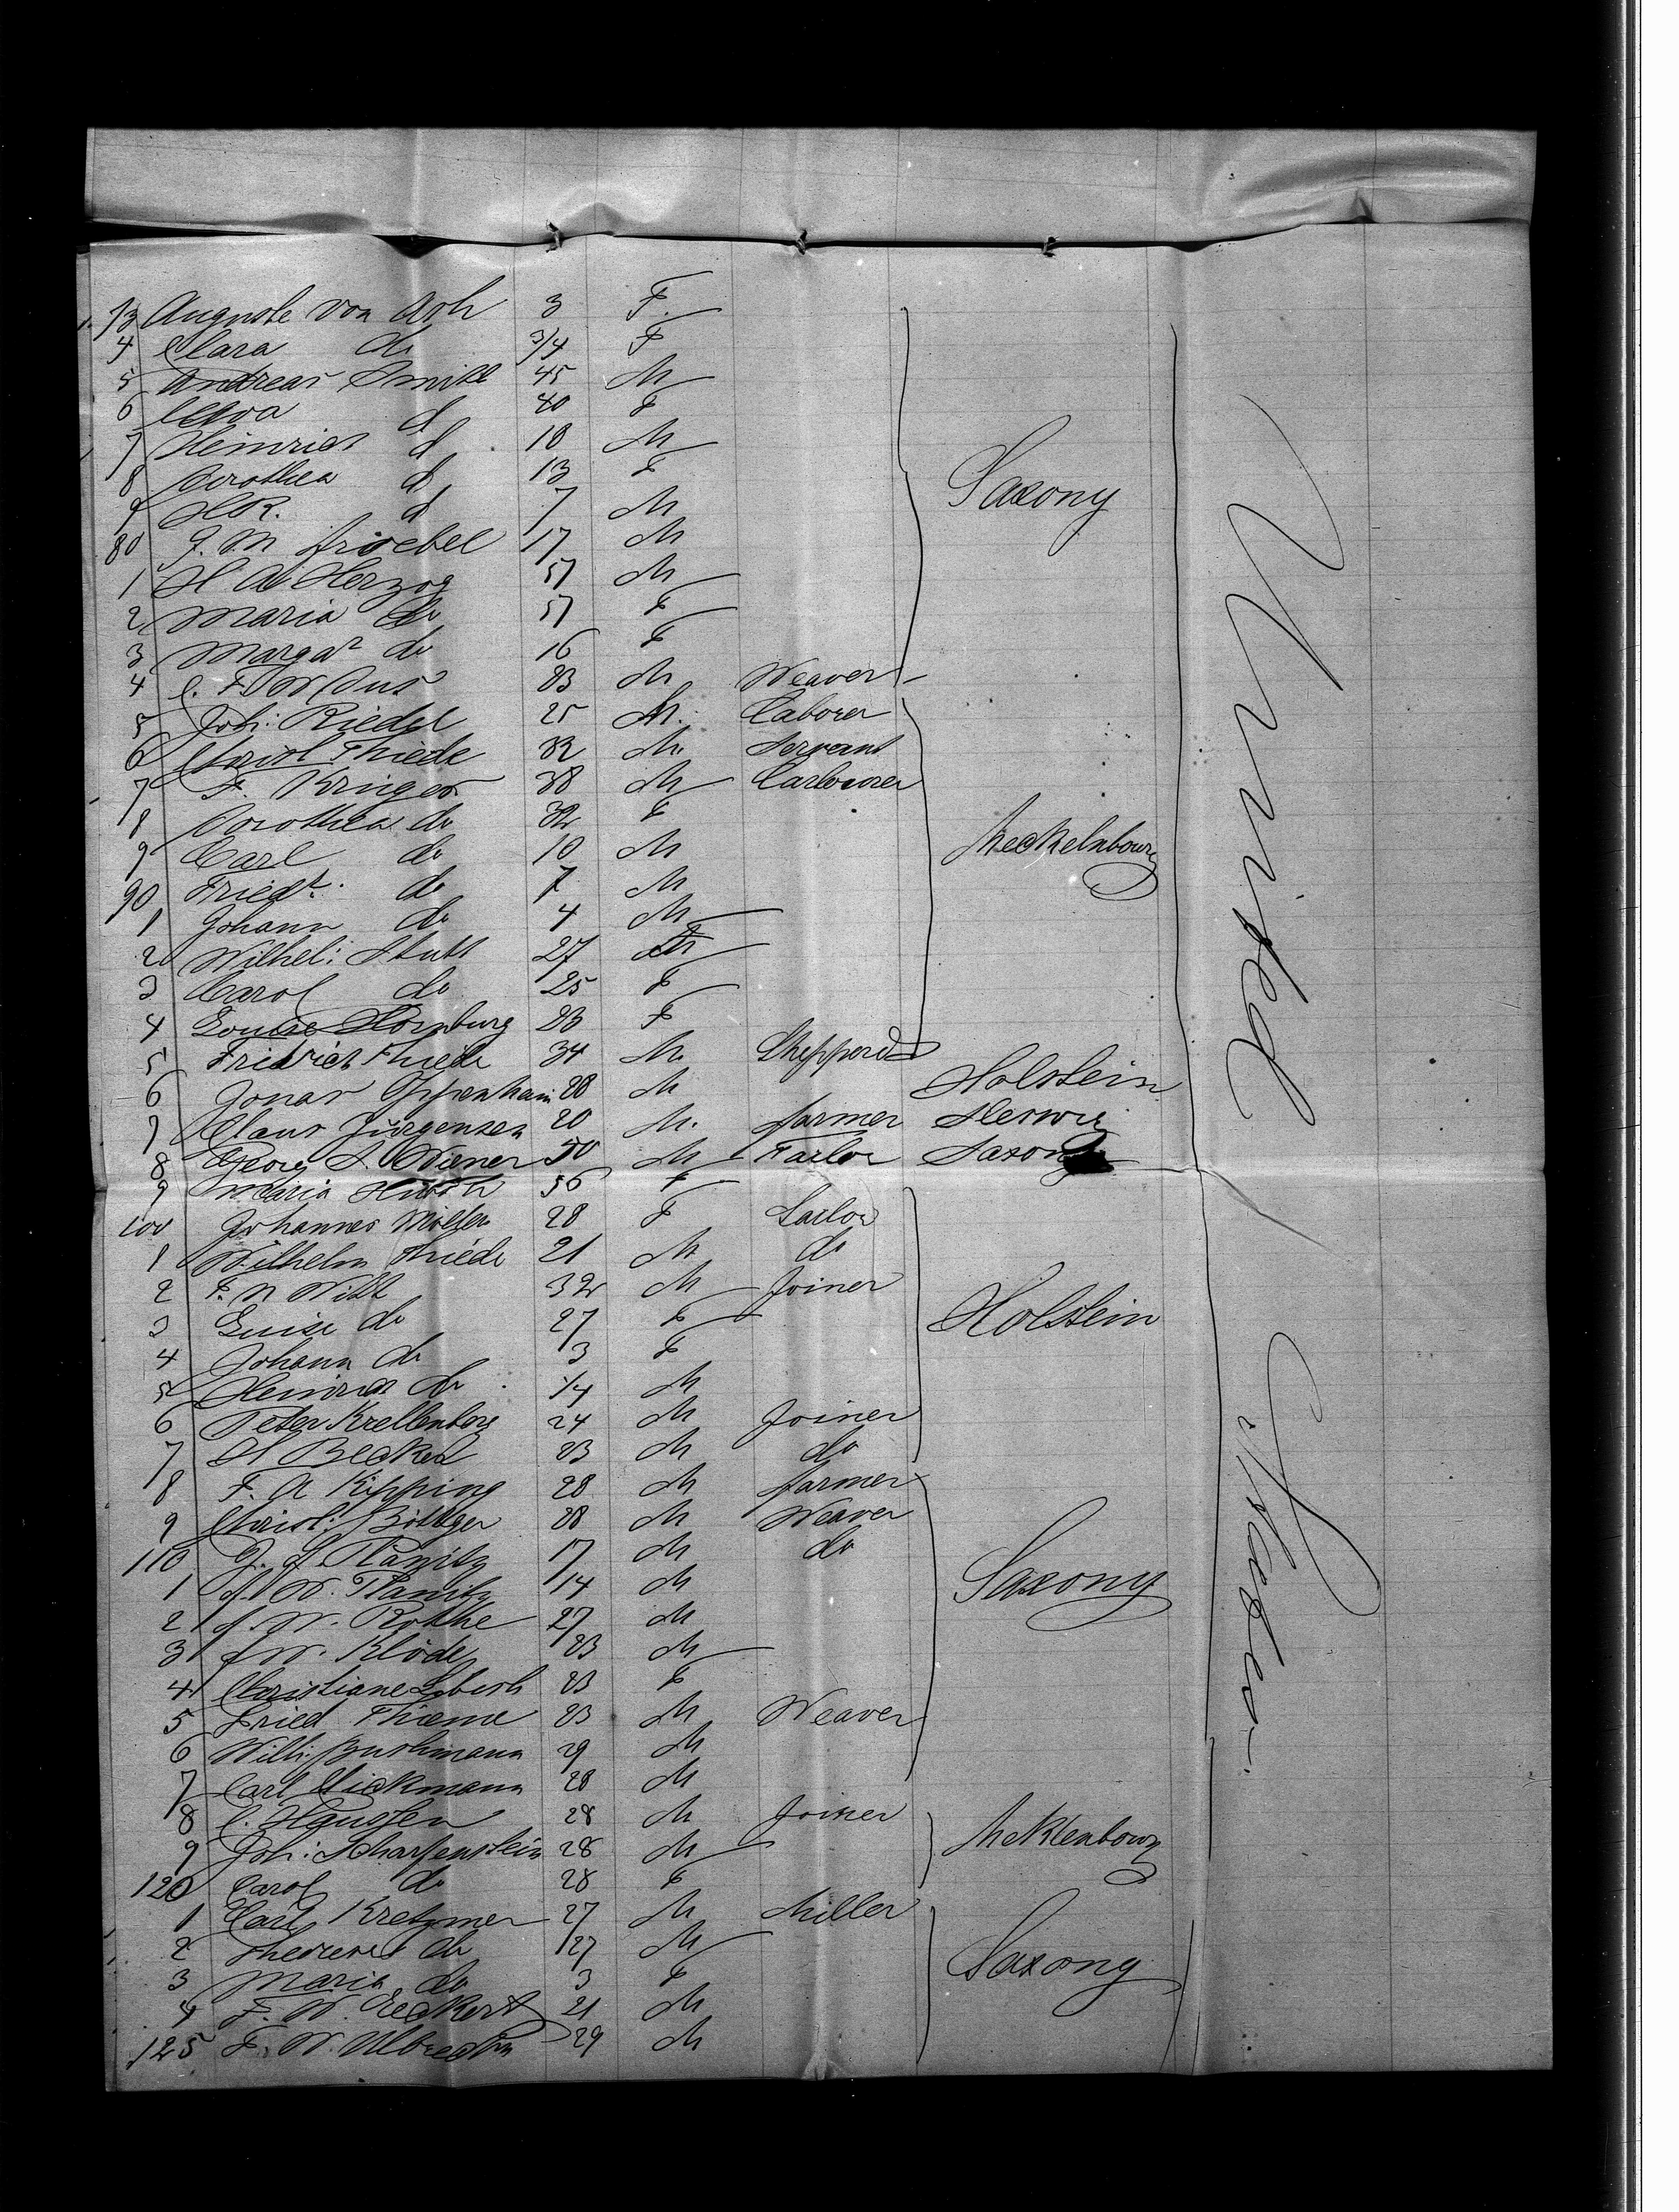 73 Auguste von Ash 3 F.
4 Clara do 3/4 F
5 Andreas Smitt 45 M
6 d 40 F
7 Heinrich d 10 M
8 Dorothea d 13 F
9 H.R. d 7 M
80 J. M Froebel 17 M
1 H A Herzog 57 M
2 Maria do 57 F
3 Margar do 16 F
4 C. F. W 23 M Weaver
Saxony
5 Joh: Riedel 25 M. Laborer
6 Christ Thiede 32 M. Servant
7 F. Kruger 38 M
8 Dorothea do 32 F
9 Carl do 10 M
90 Friedr. do 7 M
1 Johann do 4 M
2 Wilhel: Stutt 27 M
3 Carol do 25 F
4 Louise Hornburg 23 F
5 Fridrich Thiede 34 M. Shepperd
Meckelnbourg
6 Jonas Oppenheim 28 M Holstein
7 Claus Jürgensen 20 M. farmer Sleswig
8 Georg S. Wiener 50 M Tailor Saxony
9 Maria Hirsch 56 F
100 Johannes Möller 28 F Sailor
1 Wilhelm Thiede 21 M do
2 F. W Witt 32 M Joiner
3 Luise do 27 F
4 Johann do 3 F
5 Heinrich do 1/4 M
6 Peter Krellenberg 24 M Joiner
7 H Becker 23 M do
Holstein
8 F. A Kipping 28 M farmer
9 Christ: Böttger 28 M Weaver
110 G. F. Planitz 17 M do
1 F. W. Planitz 14 M
2 F. W. Rothe 27 M
3 F. W. Klöde 23 M
4 Christiane 23 F
5 Fried Thieme 23 M Weaver
6 Wilh: Bushmann 29 M
7 Carl Dickmann 28 M
Saxony
8 C. 28 M Joiner
9 Joh: Scharfenstein 28 M
120 Carol do 28 F
Mecklenbourg
1 Carl Kretzmer 27 M Miller
2 Therese do 27 M
3 Maria do 3 F
4 F. W. Eckert 21 M
125 F. W. Ulbrecht 29 M
Saxony
United States.